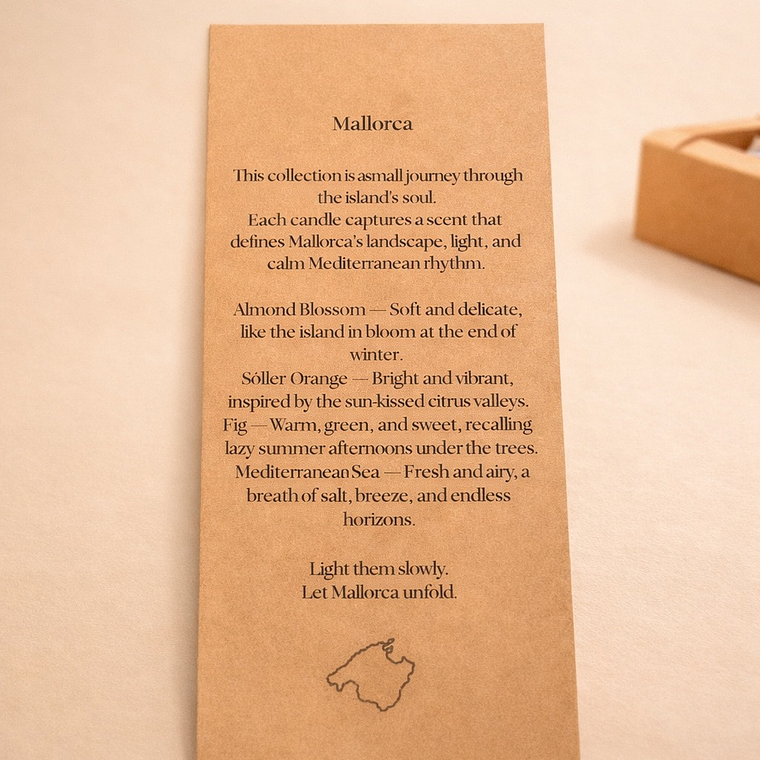 Mallorca
This collection is asmall journey through
the island's soul.
Each candle captures a scent that
defines Mallorca's landscape, light, and
calm Mediterranean rhythm.
Almond Blossom — Soft and delicate,
like the island in bloom at the end of
winter.
Sóller Orange — Bright and vibrant,
inspired by the sun-kissed citrus valleys.
Fig — Warm, green, and sweet, recalling
lazy summer afternoons under the trees.
Mediterranean Sea — Fresh and airy, a
breath of salt, breeze, and endless
horizons.
Light them slowly.
Let Mallorca unfold.